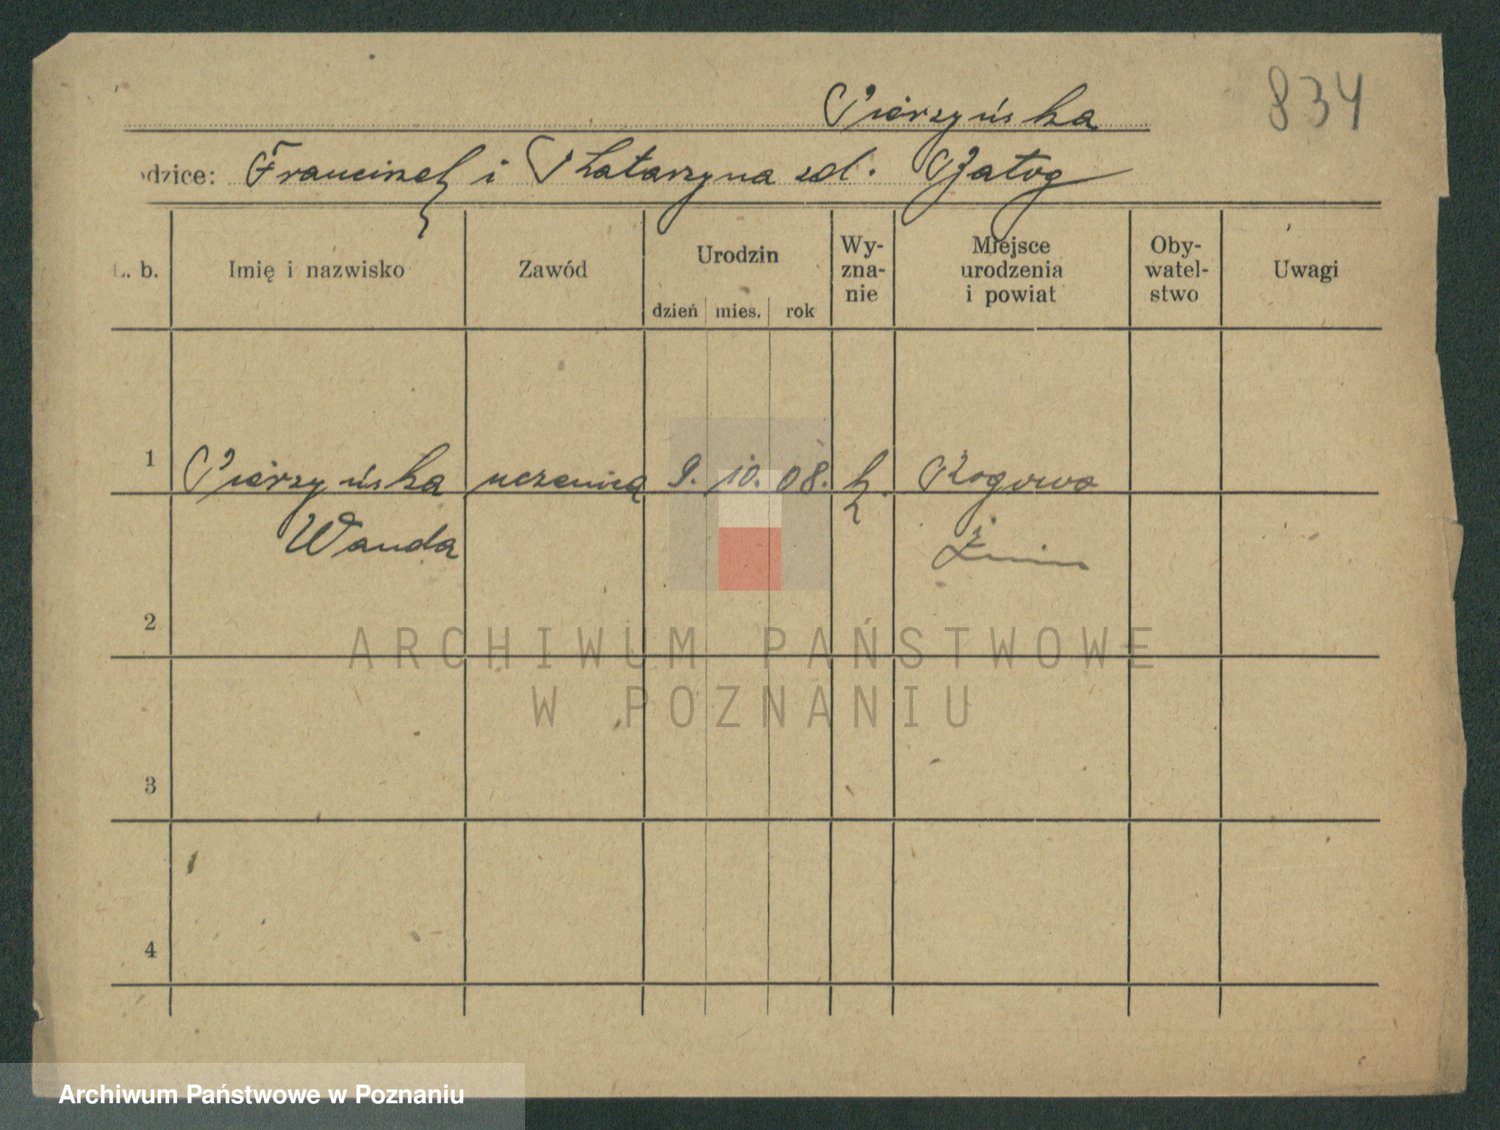 Pierzyńska
834
odzice: Franciszek i Katarzyna zd. Załog
L. b.
Imię i nazwisko
Zawód
Urodzin
dzień mies. rok
Wy-
zna-
nie
Miejsce
urodzenia
i powiat
Oby-
watel-
stwo
Uwagi
1 Pierzyńska uczenica 9. 10. 08. k. Rogowo
Wanda Żnin
2
3
4
ARCHIWUM PAŃSTWOWE
W POZNANIU
Archiwum Państwowe w Poznaniu